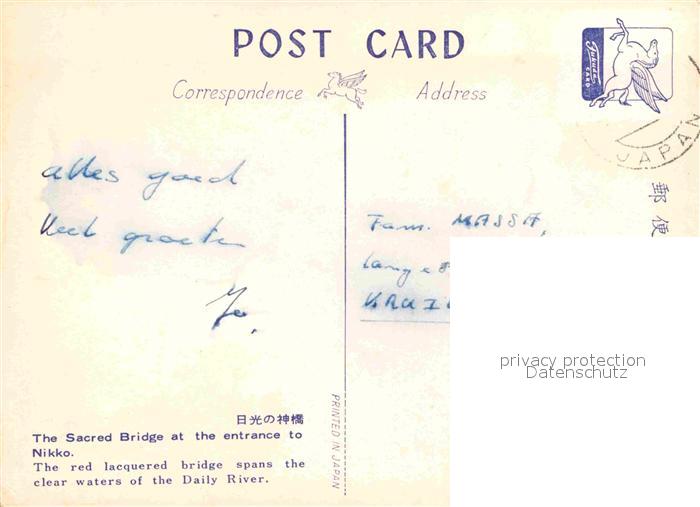 POST CARD
Correspondence
Address
Fukuda
CARD
JAPAN
郵便
alles goed
Veel groeten
Jo.
Fam. MASSA,
Lange
KRUI
日光の神橋
The Sacred Bridge at the entrance to
Nikko.
The red lacquered bridge spans the
clear waters of the Daily River.
PRINTED IN JAPAN
privacy protection
Datenschutz